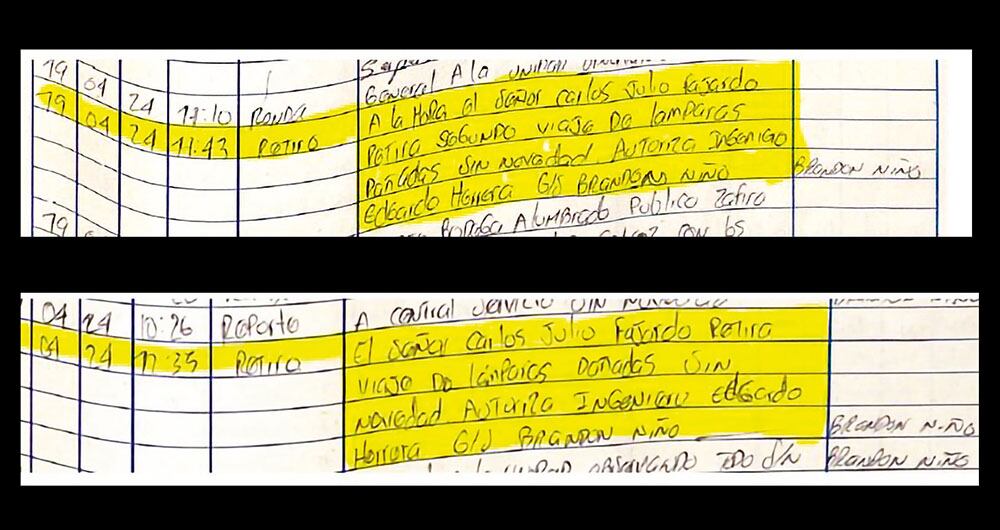 19 04 24 11:10 RONDA General A la unidad
19 04 24 11:43 RETIRO A la HORA el señor carlos Julio Fajardo
Retira SEGUNDO viaje De lamparas
Donadas SIN Novedad. Autoriza Ingeniero
Edgardo Herrera G/S BRANDON NIÑO BRANDON NIÑO
19 Bodega Alumbrado Publico Zafiro
con los
04 24 10:26 Reporte A central servicio SIN Novedad
04 24 11:35 Retiro El señor Carlos Julio Fajardo Retira
viaje De lámparas Donadas SIN
novedad Autoriza INGENIERO Edgardo
Herrera G/S BRANDON NIÑO BRANDON NIÑO
OBSERVANDO TODO S/N BRANDON NIÑO